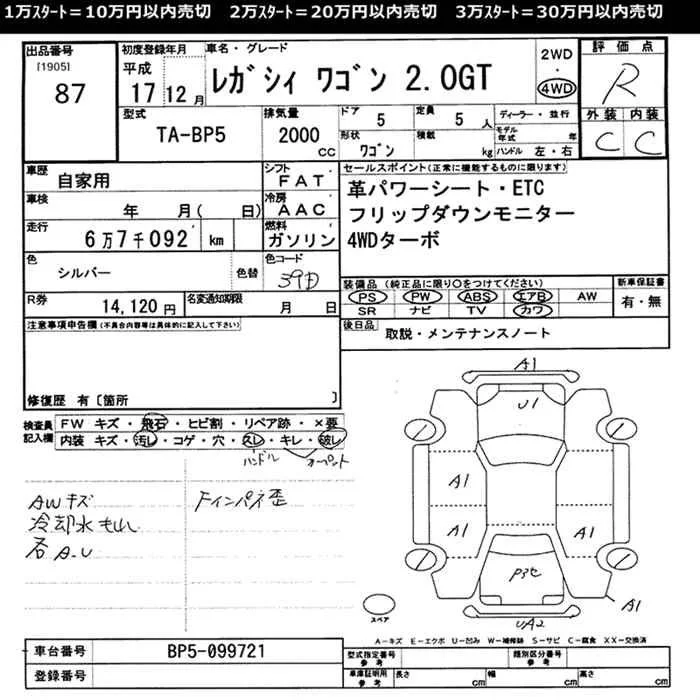 1万ｽﾀｰﾄ＝10万円以内売切　2万ｽﾀｰﾄ＝20万円以内売切　3万ｽﾀｰﾄ＝30万円以内売切
出品番号
[1905]
87
初度登録年月
平成
17 12 月
車名・グレード
レガシィ ワゴン 2.0GT
2WD
・
4WD
評価点
R
外装 内装
C C
型式
TA-BP5
排気量
2000
cc
ドア
5
定員
5 人
形状
ワゴン
積載
kg
ディーラー・並行
モデル年式 年
ハンドル 左・右
車歴
自家用
シフト
FAT
車検
年 月( 日)
冷房
AAC
走行
6万7千092 km
燃料
ガソリン
色
シルバー
色替
色コード
39D
R券
14,120 円
名変通知期限
月 日
セールスポイント(正常に機能するものに限ります)
革パワーシート・ETC
フリップダウンモニター
4WDターボ
装備品(純正品に限り○をつけてください)
PS PW ABS エアB AW
SR ナビ TV カワ
新車保証書
有・無
後日品
取説・メンテナンスノート
注意事項申告欄(不具合内容等は具体的に記入して下さい)
修復歴 有〔箇所 〕
検査員記入欄
FW キズ・飛石・ヒビ割・リペア跡・×要
内装 キズ・汚レ・コゲ・穴・スレ・キレ・破レ
ハンドル
AWキズ
冷却水もれ
各A-U
Fインパネ歪
A1
U1
A1
A1
A1
A1
A1
UA2
スペア
A－キズ E－エクボ U－凹み W－補修跡 S－サビ C－腐食 XX－交換済
車台番号
BP5-099721
登録番号
型式指定番号
参考
類別区分番号
参考
車庫証明用
参考
長さ cm
幅 cm
高さ cm